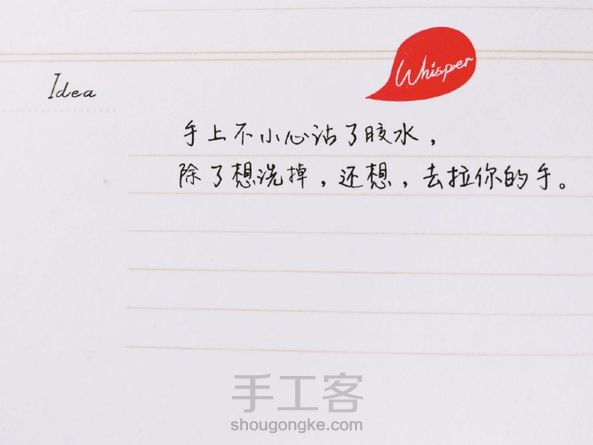 Whisper
Idea
手上不小心沾了胶水，
除了想洗掉，还想，去拉你的手。
手工客
shougongke.com